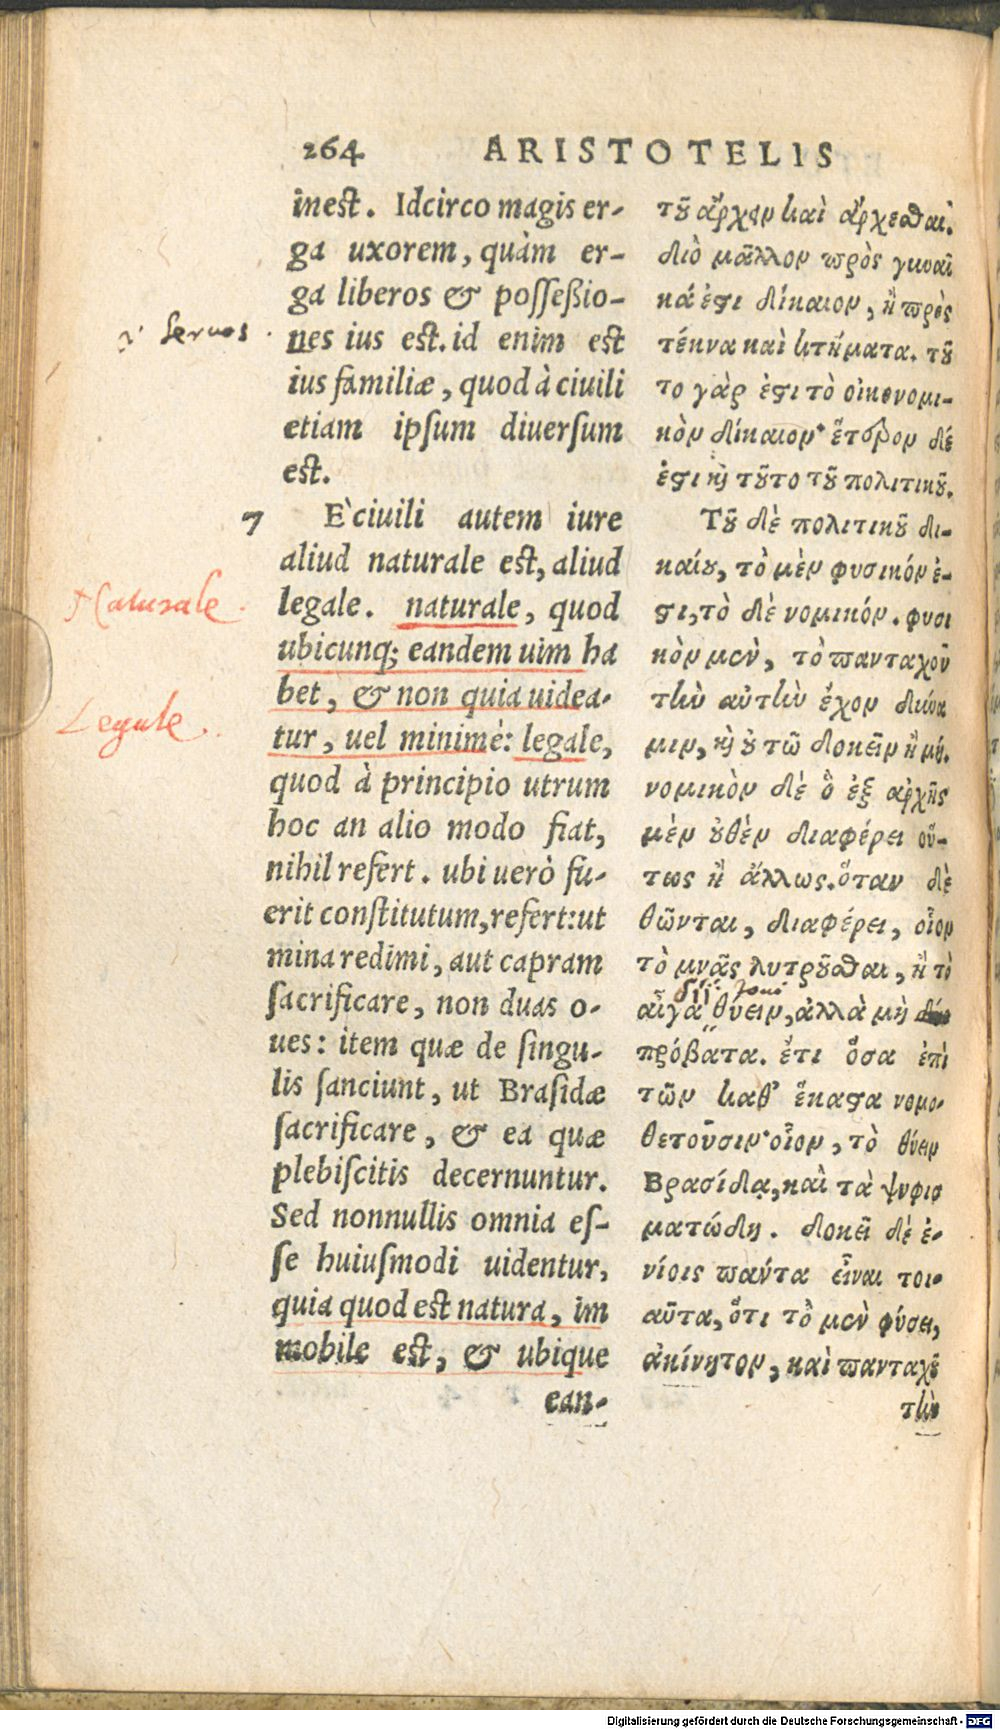 264 ARISTOTELIS
inest. Idcirco magis er-
ga uxorem, quàm er-
ga liberos & possessio-
nes ius est. id enim est
ius familiæ, quod à ciuili
etiam ipsum diuersum
est.
7 E' ciuili autem iure
aliud naturale est, aliud
legale. naturale, quod
ubicunq; eandem uim ha
bet, & non quia uidea-
tur, uel minimè: legale,
quod à principio utrum
hoc an alio modo fiat,
nihil refert. ubi uerò fu-
erit constitutum, refert: ut
mina redimi, aut capram
sacrificare, non duas o-
ues: item quæ de singu-
lis sanciunt, ut Brasidæ
sacrificare, & ea quæ
plebiscitis decernuntur.
Sed nonnullis omnia es-
se huiusmodi uidentur,
quia quod est natura, im
mobile est, & ubique
ean-
τοῦ ἄρχειν καὶ ἄρχεσθαι.
διὸ μᾶλλον πρὸς γυναῖ
κά ἐστι δίκαιον, ἢ πρὸς
τέκνα καὶ κτήματα. τοῦ
το γάρ ἐστι τὸ οἰκονομι-
κὸν δίκαιον· ἕτερον δέ
ἐστι καὶ τοῦτο τοῦ πολιτικοῦ.
Τοῦ δὲ πολιτικοῦ δι-
καίου, τὸ μὲν φυσικόν ἐ-
στι, τὸ δὲ νομικόν. φυσι
κὸν μὲν, τὸ πανταχοῦ
τὴν αὐτὴν ἔχον δύνα
μιν, καὶ οὐ τῷ δοκεῖν ἢ μή.
νομικὸν δὲ ὃ ἐξ ἀρχῆς
μὲν οὐθὲν διαφέρει οὕ-
τως ἢ ἄλλως. ὅταν δὲ
θῶνται, διαφέρει, οἷον
τὸ μνᾶς λυτροῦσθαι, ἢ τὸ
αἶγα θύειν, ἀλλὰ μὴ δύο
πρόβατα. ἔτι ὅσα ἐπὶ
τῶν καθ' ἕκαστα νομο-
θετοῦσιν· οἷον, τὸ θύειν
Βρασίδᾳ, καὶ τὰ ψηφισ
ματώδη. δοκεῖ δὲ ἐ-
νίοις πάντα εἶναι τοι-
αῦτα, ὅτι τὸ μὲν φύσει,
ἀκίνητον, καὶ πανταχοῦ
τὴν
servos
Naturale
Legale
Digitalisierung gefördert durch die Deutsche Forschungsgemeinschaft - DFG